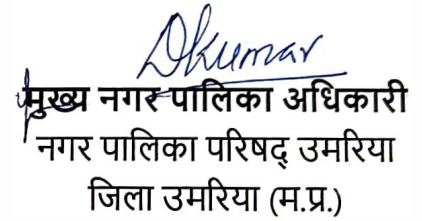 Dkumar
मुख्य नगर पालिका अधिकारी
नगर पालिका परिषद् उमरिया
जिला उमरिया (म.प्र.)